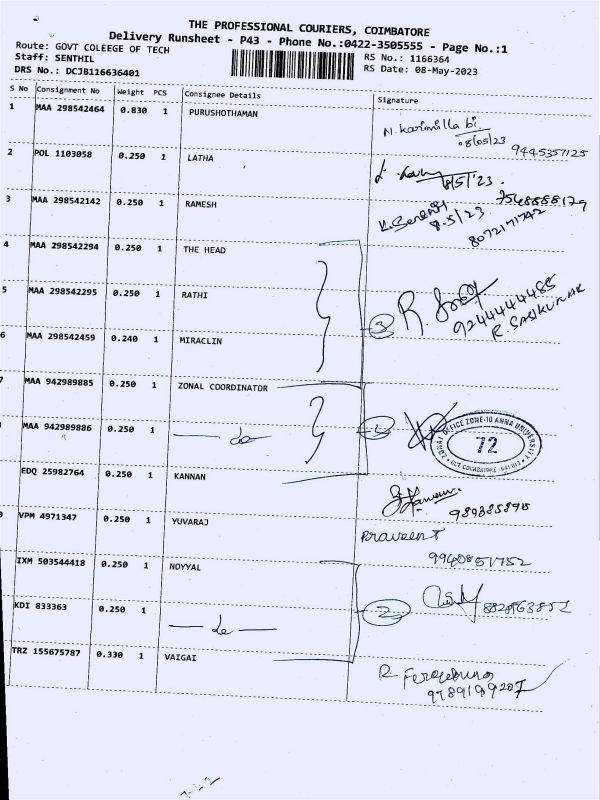 THE PROFESSIONAL COURIERS, COIMBATORE
Delivery Runsheet - P43 - Phone No.:0422-3505555 - Page No.:1
Route: GOVT COLEEGE OF TECH
Staff: SENTHIL
RS No.: 1166364
DRS No.: DCJB116636401
RS Date: 08-May-2023
S No Consignment No Weight PCS Consignee Details Signature
1 MAA 298542464 0.830 1 PURUSHOTHAMAN
N. karimilla bi
08/05/23
9445357125
2 POL 1103058 0.250 1 LATHA
8/5/23
7548888179
3 MAA 298542142 0.250 1 RAMESH
8.5/23
8072171742
4 MAA 298542294 0.250 1 THE HEAD
5 MAA 298542295 0.250 1 RATHI
3
9244444485
R. SASIKUMAR
6 MAA 298542459 0.240 1 MIRACLIN
7 MAA 942989885 0.250 1 ZONAL COORDINATOR
MAA 942989886 0.250 1 — do —
ZONAL OFFICE ZONE-10 ANNA UNIVERSITY
72
EDQ 25982764 0.250 1 KANNAN
VPM 4971347 0.250 1 YUVARAJ
Praveen T
9940851752
IXM 503544418 0.250 1 NOYYAL
KDI 833363 0.250 1 — do —
2
TRZ 155675787 0.330 1 VAIGAI
9789199207